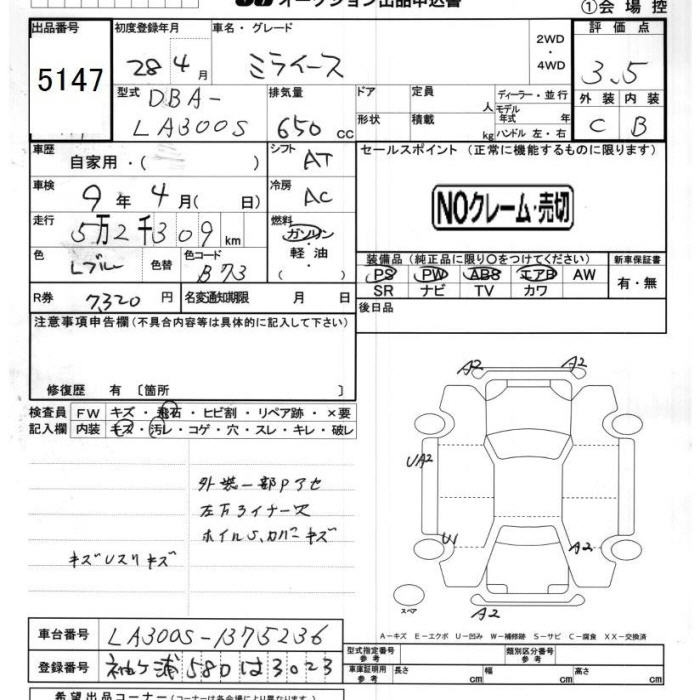 オークション出品申込書
①会場控
出品番号 初度登録年月 車名・グレード 2WD・4WD 評価点
5147 28 4月 ミライース 3.5
型式 DBA-LA300S 排気量 650 cc ドア 定員 人 ディーラー・並行
形状 積載 kg モデル年式 年 ハンドル 左・右
外装 内装
C B
車歴 自家用・( ) シフト AT セールスポイント (正常に機能するものに限ります)
車検 9年 4月( 日) 冷房 AC
NOクレーム・売切
走行 5万2千309km 燃料 ガソリン・軽油・( )
色 Lブルー 色替 色コード B73
装備品 (純正品に限り○をつけてください) 新車保証書
PS PW ABS エアB AW 有・無
SR ナビ TV カワ
R券 7,320円 名変通知期限 月 日 後日品
注意事項申告欄 (不具合内容等は具体的に記入して下さい)
修復歴 有 〔箇所 〕
検査員 FW キズ・飛石・ヒビ割・リペア跡・×要
記入欄 内装 キズ・汚レ・コゲ・穴・スレ・キレ・破レ
外装一部Pアセ
ホイルS、カバーキズ
キズUスリキズ
A2 A2
UA2
U1 A2
A2
スペア
A−キズ E−エクボ U−凹み W−補修跡 S−サビ C−腐食 XX−交換済
車台番号 LA300S-1375236
型式指定番号 参考 類別区分番号 参考
登録番号 袖ヶ浦 580 は 3023
車庫証明用 参考 長さ cm 幅 cm 高さ cm
希望出品コーナー (コーナーは各会場により異なります)